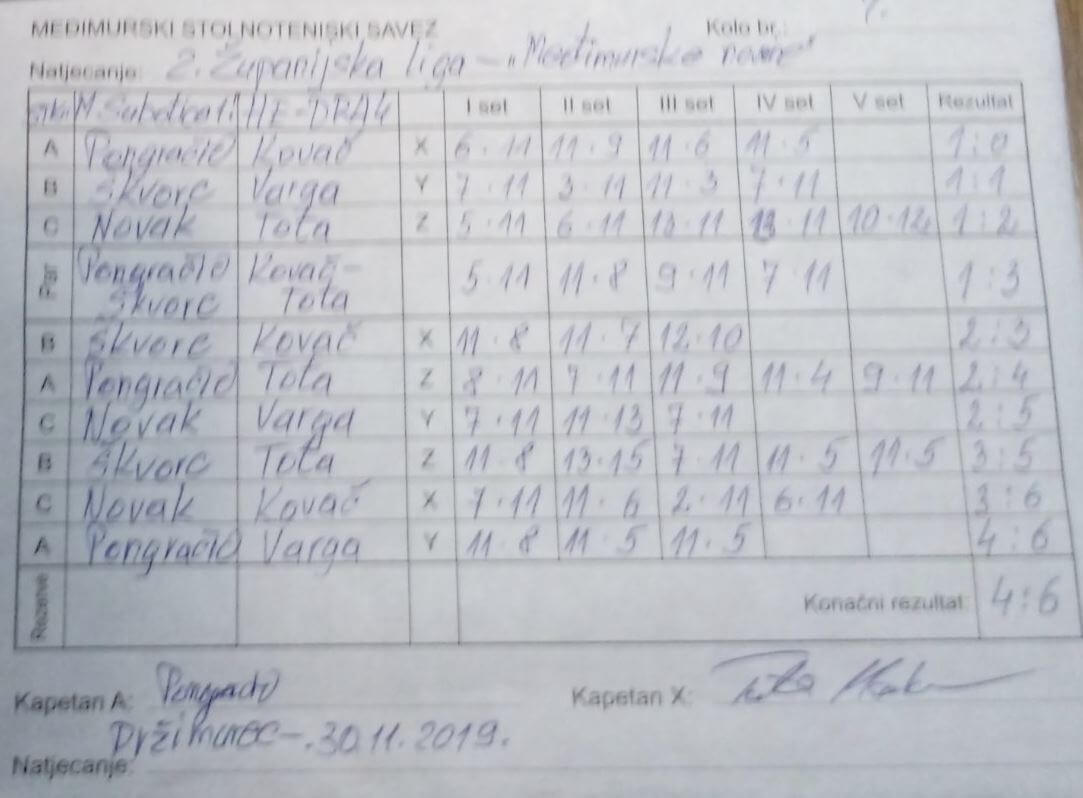 MEĐIMURSKI STOLNOTENISKI SAVEZ Kolo br.:
Natjecanje: 2. Županijska liga - „Međimurske novine"
M. Subotica I HE-DRA 4 I set II set III set IV set V set Rezultat
A Pongračić Kovač X 6 · 11 11 · 9 11 · 6 11 · 5 1:0
B Škvorc Varga Y 7 · 11 3 · 11 11 · 3 7 · 11 1:1
C Novak Tota Z 5 · 11 6 · 11 13 · 11 13 · 11 10 · 12 1:2
Par Pongračić Kovač- 5 · 11 11 · 8 9 · 11 7 · 11 1:3
Škvorc Tota
B Škvorc Kovač X 11 · 8 11 · 7 12 · 10 2:3
A Pongračić Tota Z 8 · 11 7 · 11 11 · 9 11 · 4 9 · 11 2:4
C Novak Varga Y 7 · 11 11 · 13 7 · 11 2:5
B Škvorc Tota Z 11 · 8 13 · 15 7 · 11 11 · 5 11 · 5 3:5
C Novak Kovač X 7 · 11 11 · 6 2 · 11 6 · 11 3:6
A Pongračić Varga Y 11 · 8 11 · 5 11 · 5 4:6
Rezerve Konačni rezultat: 4:6
Kapetan A: Pongračić Kapetan X: Tota
Držimurec - 30.11.2019.
Natjecanje: